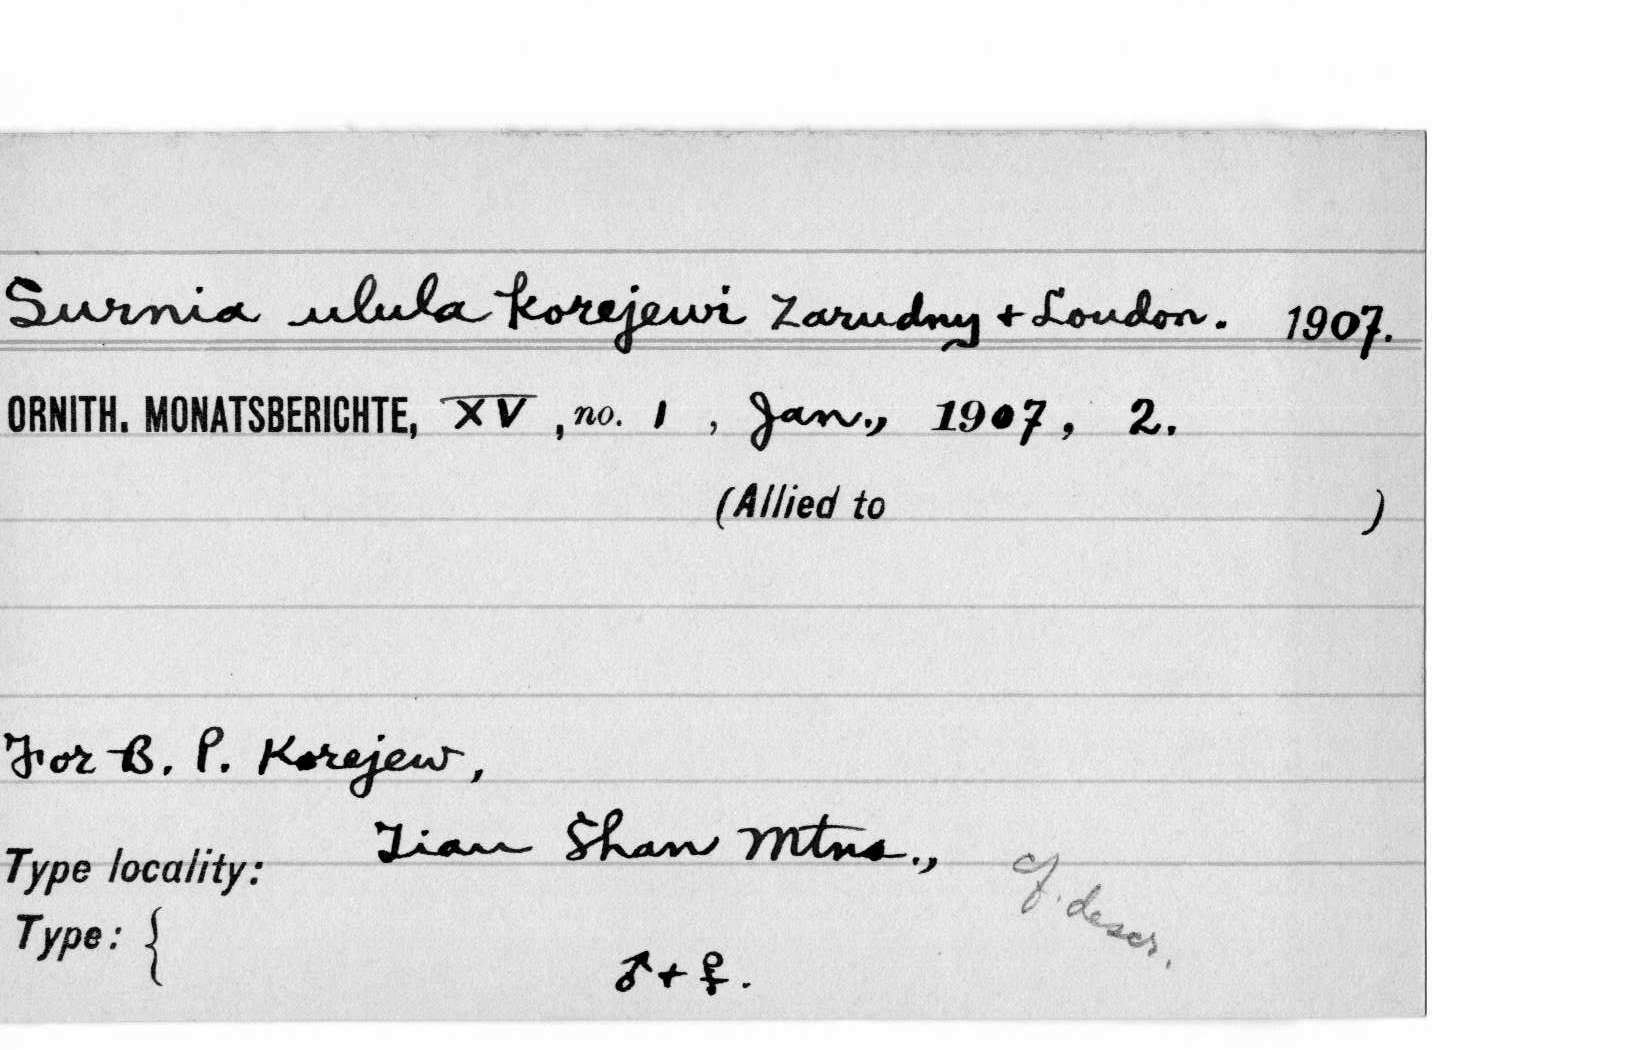 Surnia ulula korejewi Zarudny + Loudon. 1907.
ORNITH. MONATSBERICHTE, XV, no. 1, Jan., 1907, 2.
(Allied to )
For B. P. Korejew,
Type locality: Tian Shan Mtns.,
cf. descr.
Type: {
♂ + ♀.